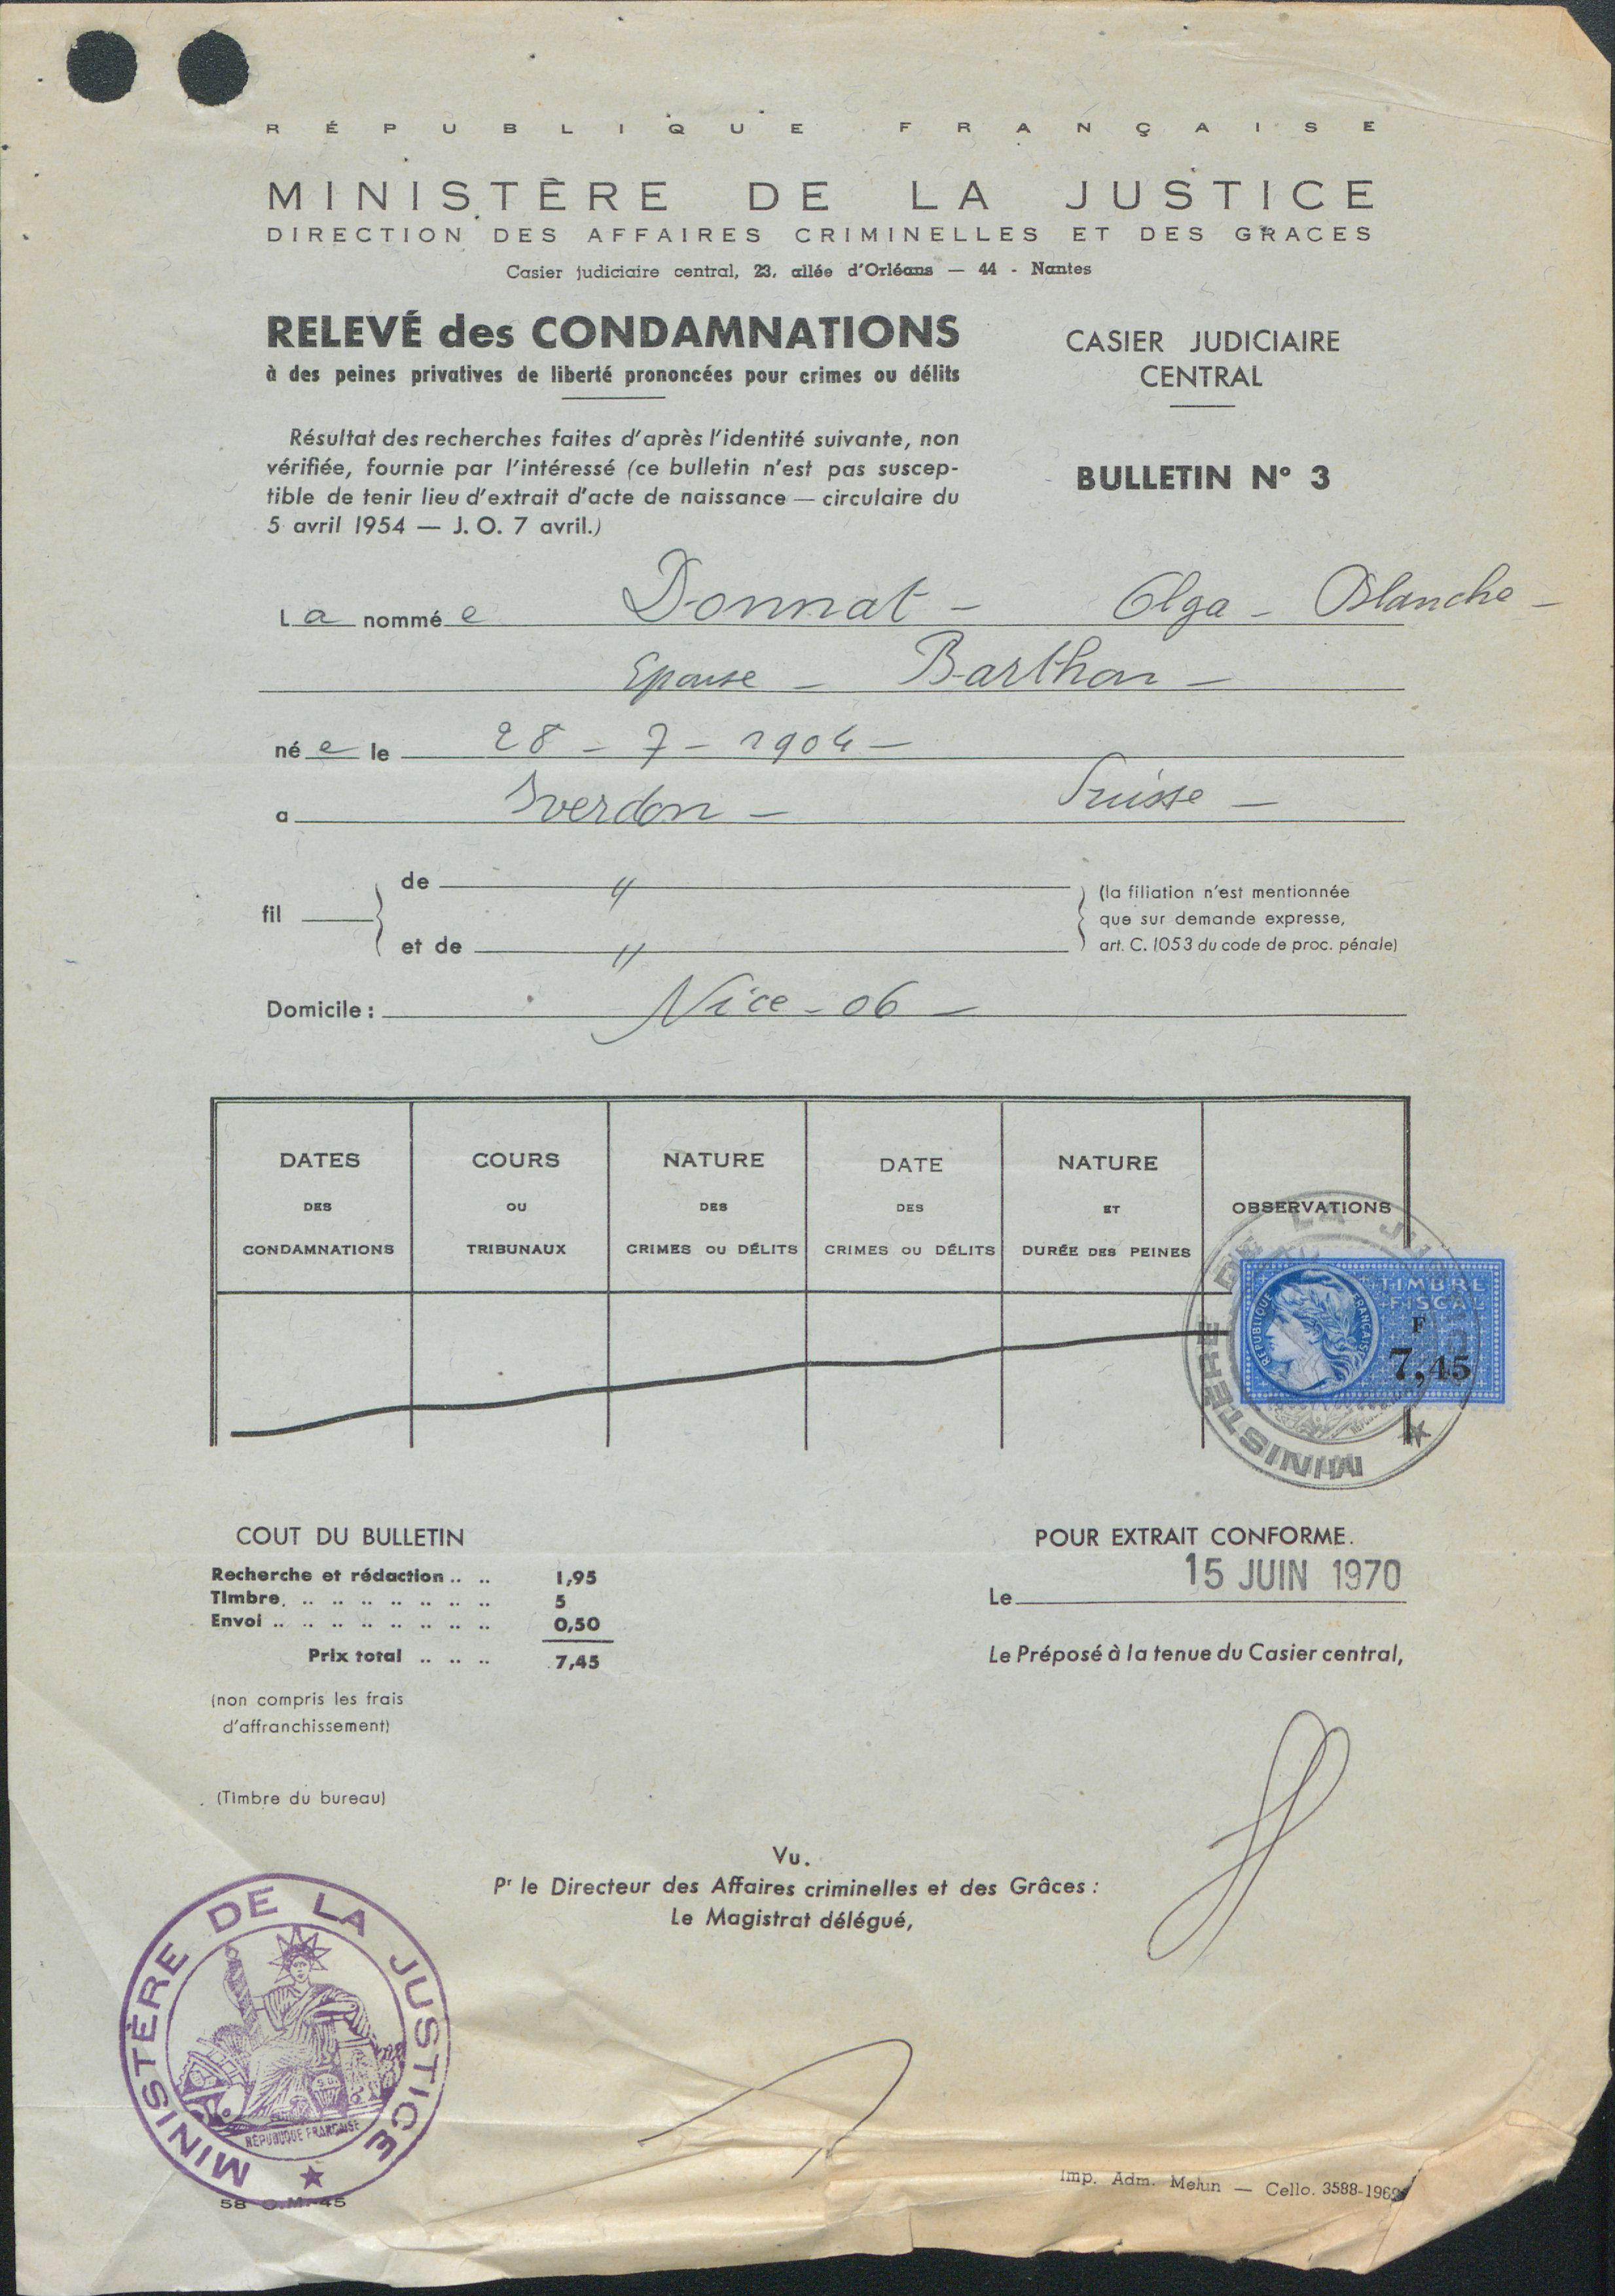 RÉPUBLIQUE FRANÇAISE
MINISTÈRE DE LA JUSTICE
DIRECTION DES AFFAIRES CRIMINELLES ET DES GRACES
Casier judiciaire central, 23, allée d'Orléans — 44 - Nantes
RELEVÉ des CONDAMNATIONS
à des peines privatives de liberté prononcées pour crimes ou délits
CASIER JUDICIAIRE
CENTRAL
Résultat des recherches faites d'après l'identité suivante, non
vérifiée, fournie par l'intéressé (ce bulletin n'est pas suscep-
tible de tenir lieu d'extrait d'acte de naissance — circulaire du
5 avril 1954 — J. O. 7 avril.)
BULLETIN N° 3
La nommée Donnat - Olga - Blanche -
Epouse - Barthon -
née le 28 - 7 - 1904 -
a Yverdon - Suisse -
fil
de "
et de "
(la filiation n'est mentionnée
que sur demande expresse,
art. C. 1053 du code de proc. pénale)
Domicile : Nice - 06 -
DATES
DES
CONDAMNATIONS
COURS
OU
TRIBUNAUX
NATURE
DES
CRIMES OU DÉLITS
DATE
DES
CRIMES OU DÉLITS
NATURE
ET
DURÉE DES PEINES
OBSERVATIONS
MINISTÈRE DE LA JUSTICE
RÉPUBLIQUE FRANÇAISE
TIMBRE
FISCAL
F
7,45
COUT DU BULLETIN
Recherche et rédaction .. .. 1,95
Timbre. .. .. .. .. .. .. .. 5
Envoi .. .. .. .. .. .. .. .. 0,50
Prix total .. .. .. 7,45
(non compris les frais
d'affranchissement)
(Timbre du bureau)
POUR EXTRAIT CONFORME.
Le 15 JUIN 1970
Le Préposé à la tenue du Casier central,
Vu.
Pr le Directeur des Affaires criminelles et des Grâces :
Le Magistrat délégué,
MINISTÈRE DE LA JUSTICE
RÉPUBLIQUE FRANÇAISE
58 C.M. 45
Imp. Adm. Melun — Cello. 3588-1969